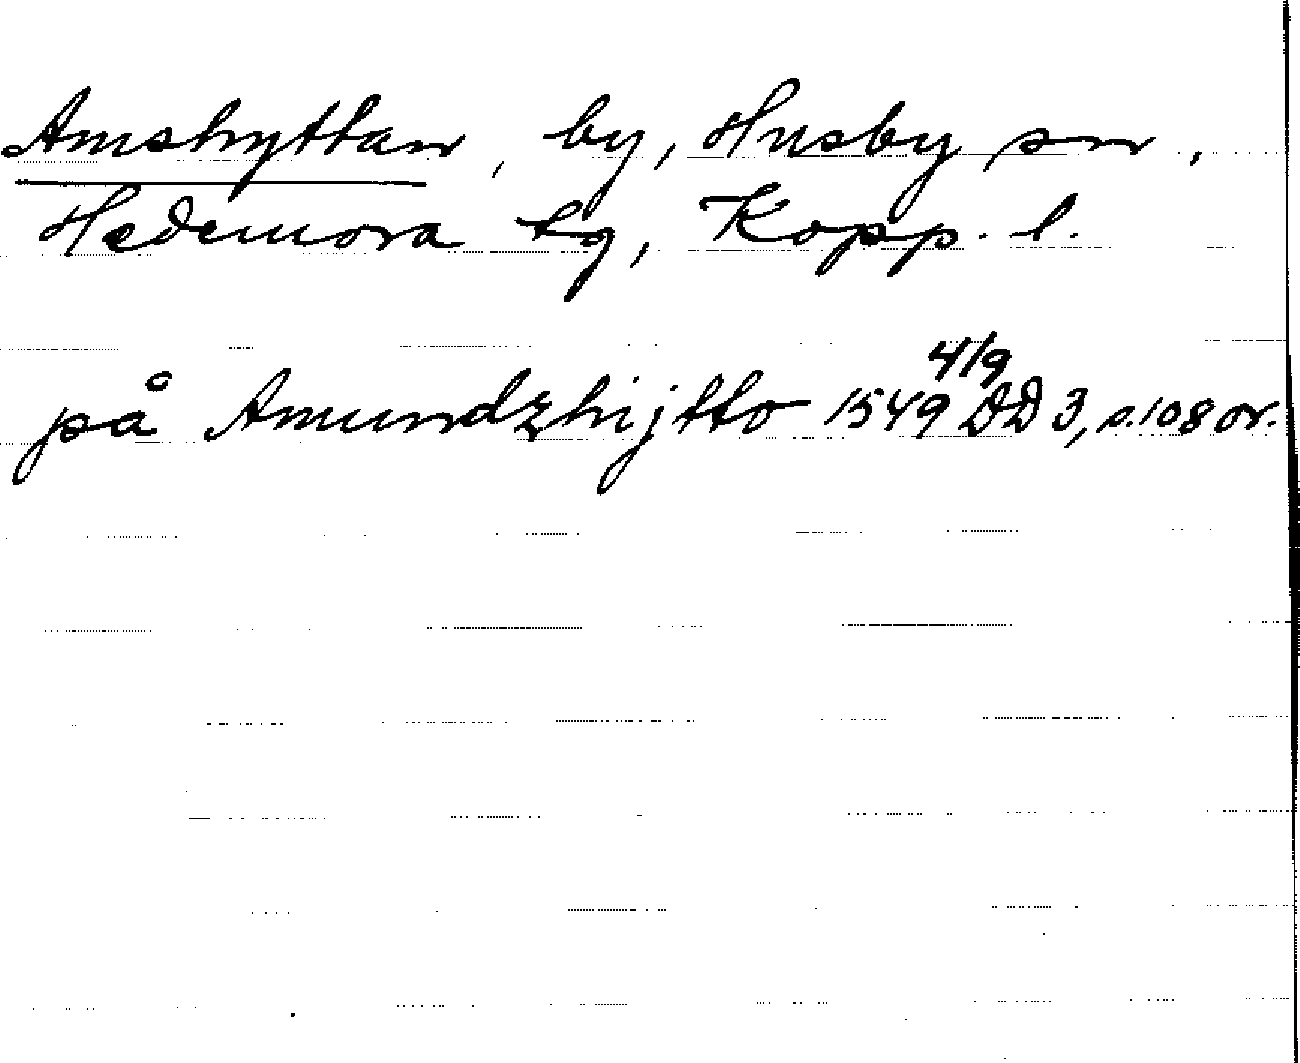 Amshyttan, by, Husby sn,
Hedemora tg, Kopp. l.
på Amundzhijtto 1549 4/9 DD 3, s. 108 or.